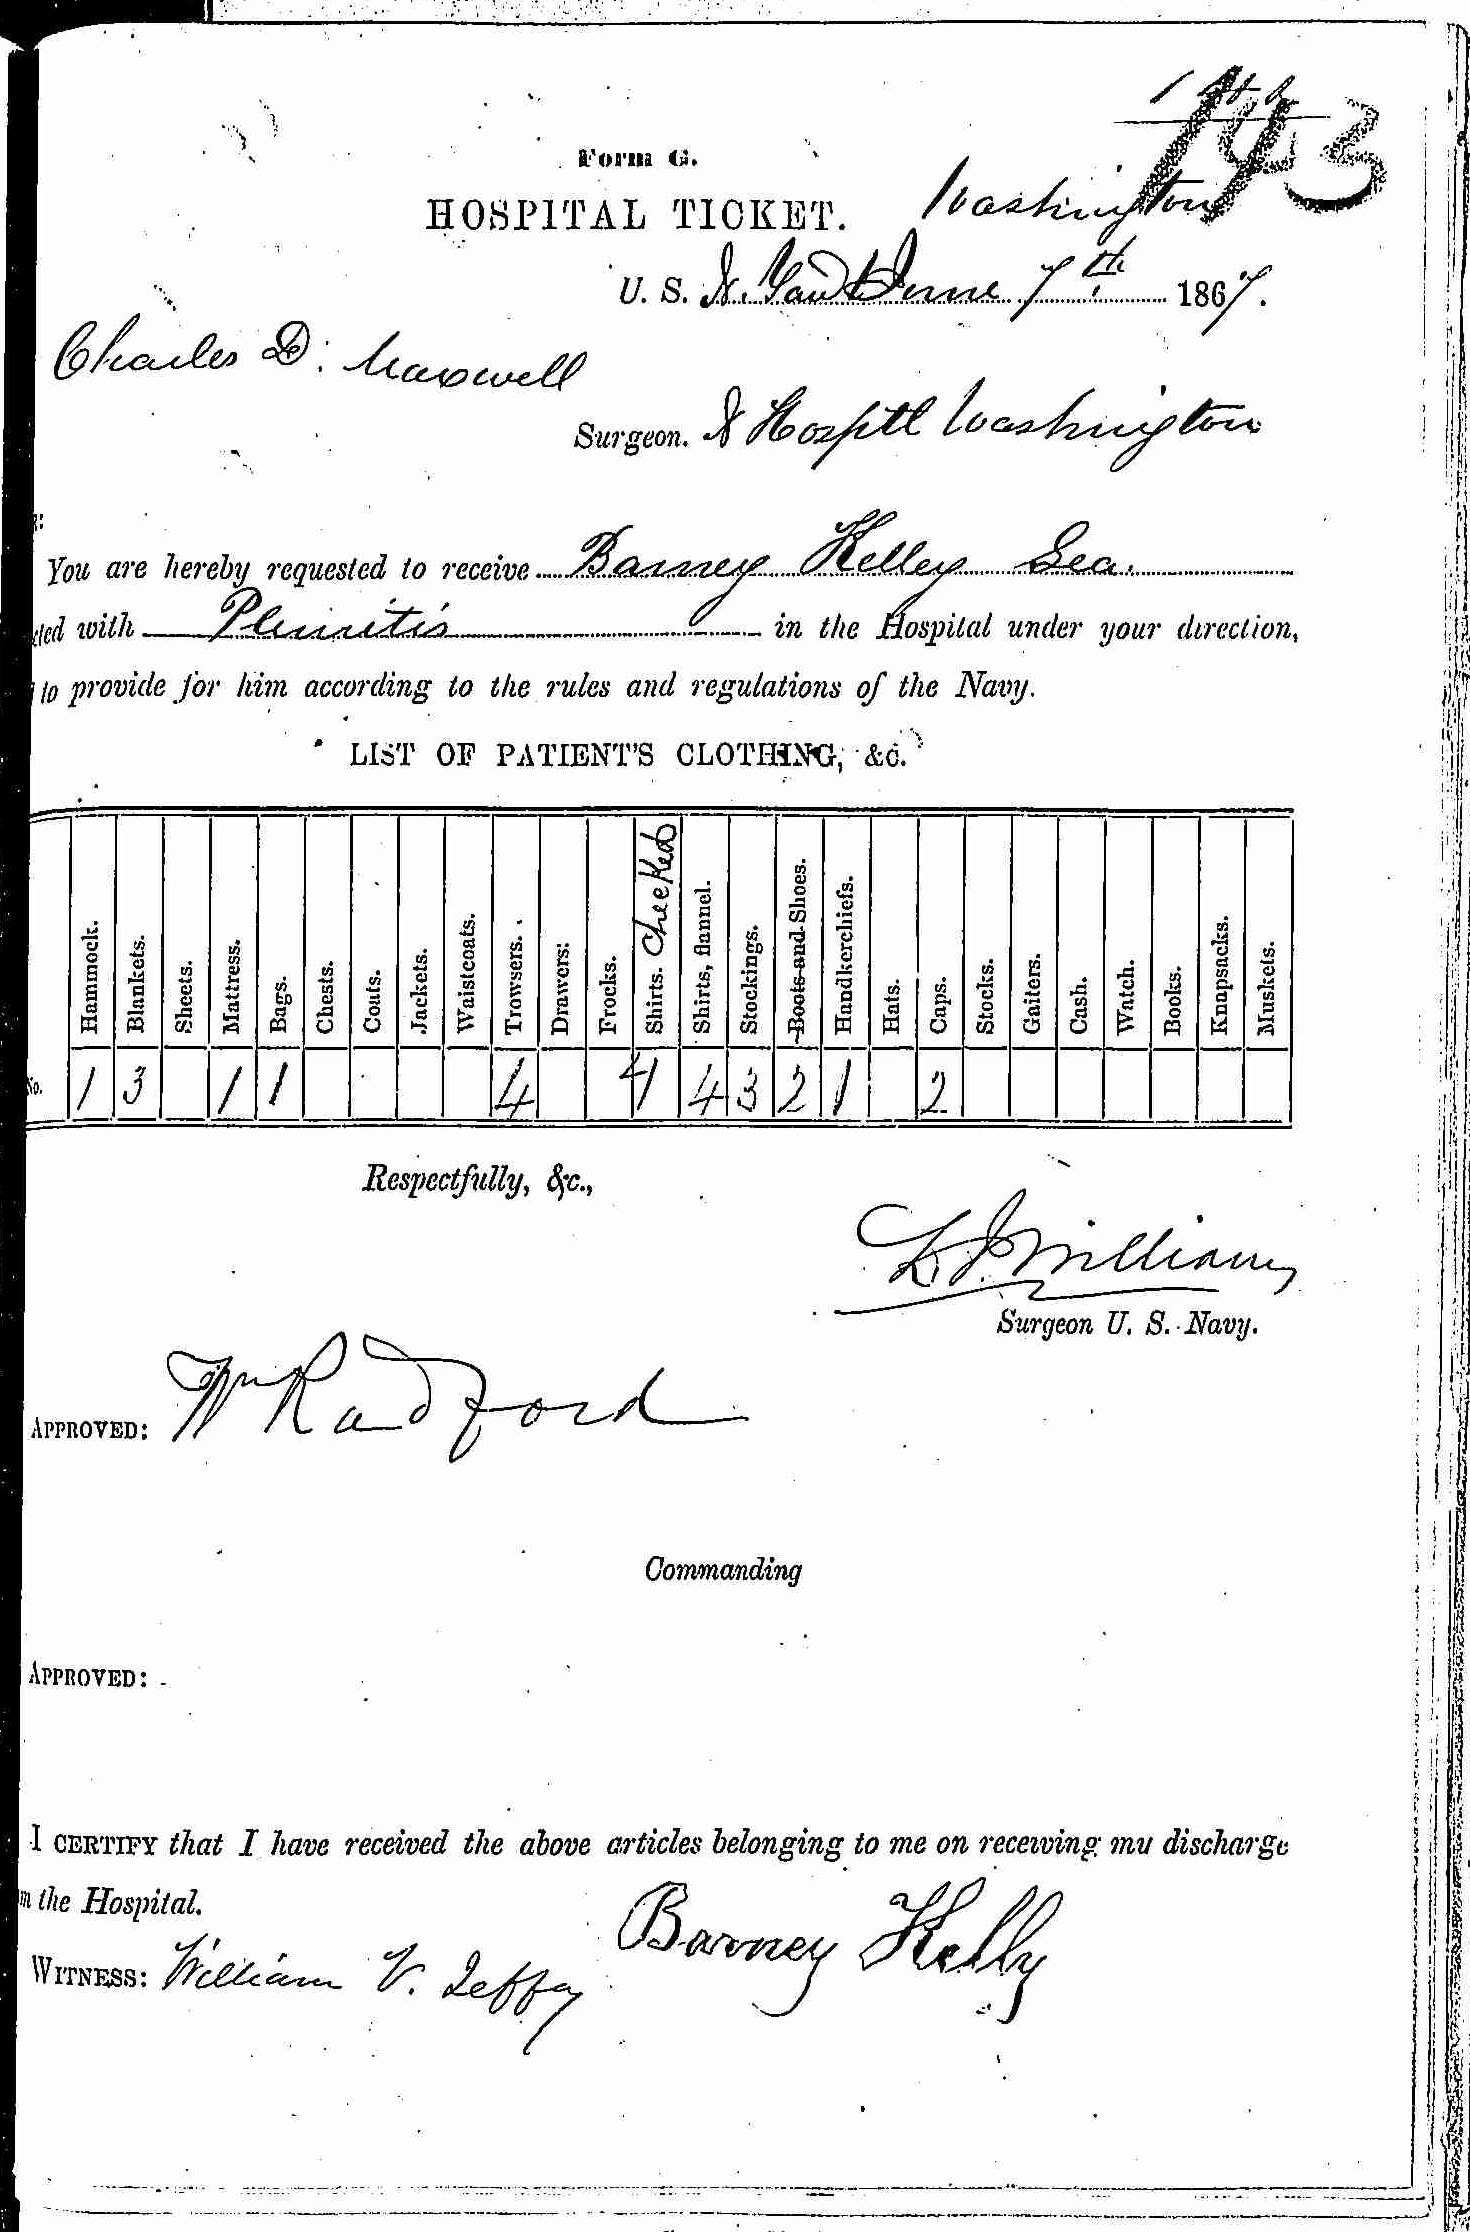 143
Form G.
HOSPITAL TICKET. Washington
U. S. N. Yard June 7th 1867.
Charles D. Maxwell
Surgeon. N Hosptl Washington
You are hereby requested to receive Barney Kelley Sea.
cted with Pleuritis in the Hospital under your direction,
to provide for him according to the rules and regulations of the Navy.
LIST OF PATIENT'S CLOTHING, &c.
Hammock. Blankets. Sheets. Mattress. Bags. Chests. Coats. Jackets. Waistcoats. Trowsers. Drawers. Frocks. Shirts. Checked Shirts, flannel. Stockings. Boots and Shoes. Handkerchiefs. Hats. Caps. Stocks. Gaiters. Cash. Watch. Books. Knapsacks. Muskets.
No. 1 3 1 1 4 4 4 3 2 1 2
Respectfully, &c.,
Williams
Surgeon U. S. Navy.
APPROVED: Wm Radford
Commanding
APPROVED:
I CERTIFY that I have received the above articles belonging to me on receiving mu discharge
m the Hospital.
Barney Kelly
WITNESS: William V.